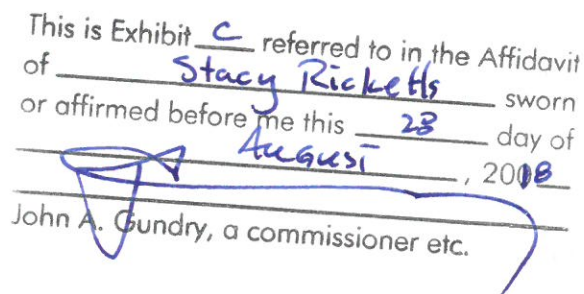 This is Exhibit C referred to in the Affidavit
of Stacy Ricketts sworn
or affirmed before me this 28 day of
August, 2018
John A. Gundry, a commissioner etc.